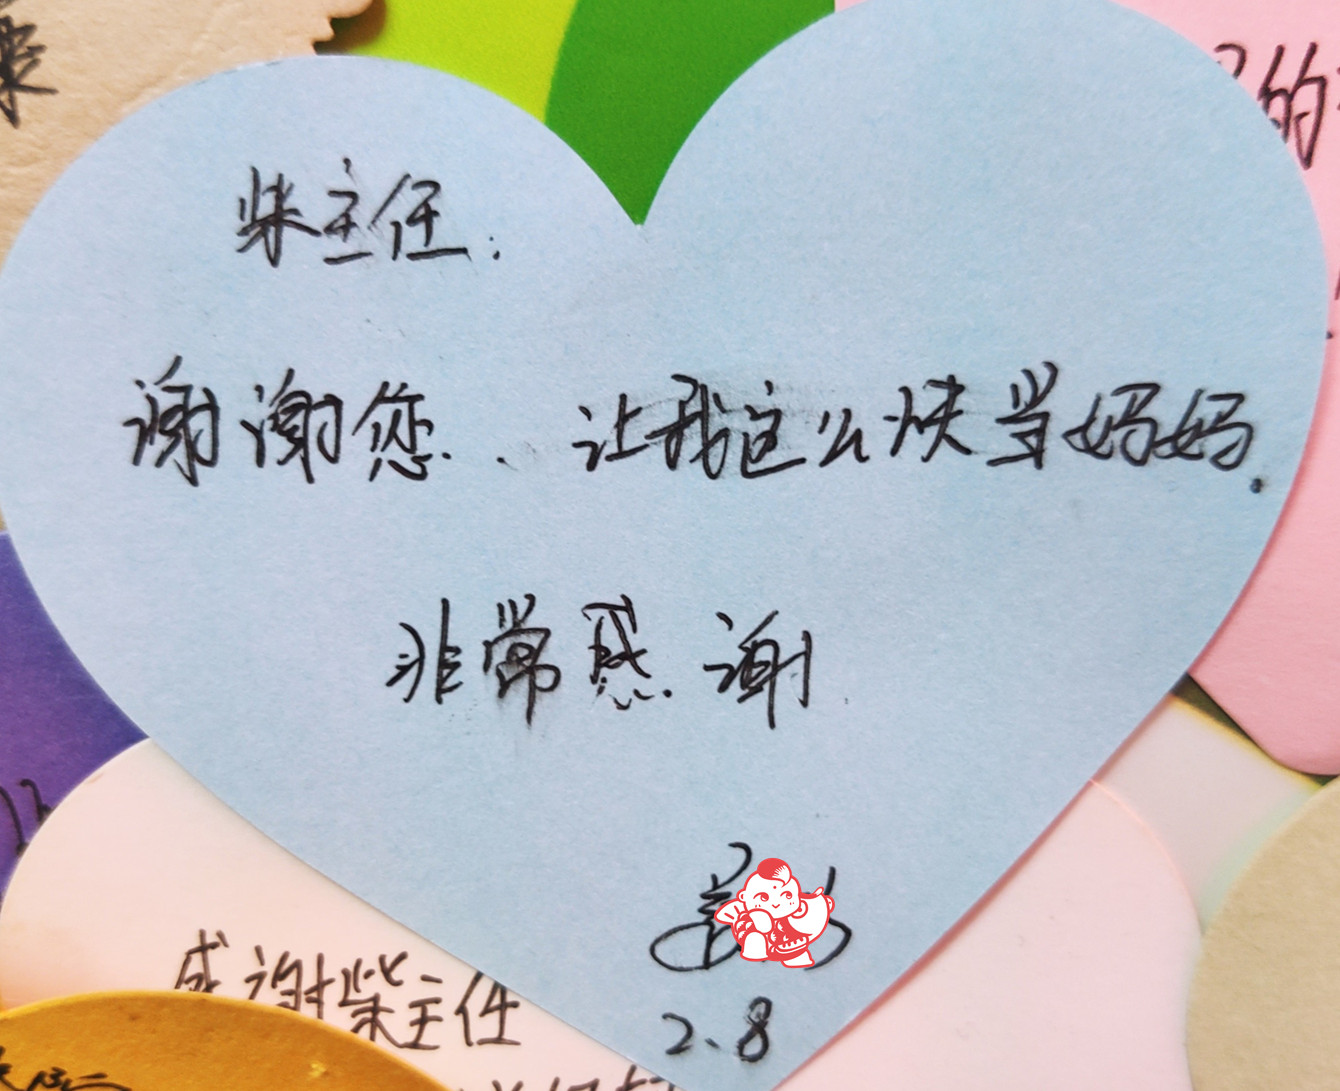 柴主任:
谢谢您、让我这么快当妈妈.
非常感谢
2.8
感谢柴主任
的